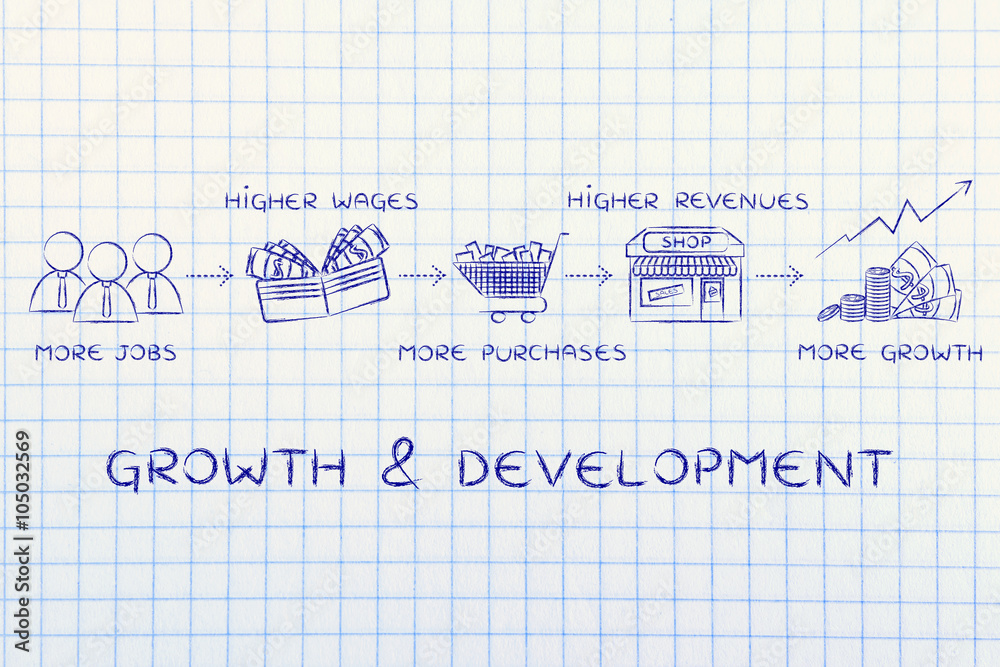 HIGHER WAGES
HIGHER REVENUES
SHOP
SALES
MORE JOBS
MORE PURCHASES
MORE GROWTH
GROWTH & DEVELOPMENT
Adobe Stock | #105032569
Adobe Stock